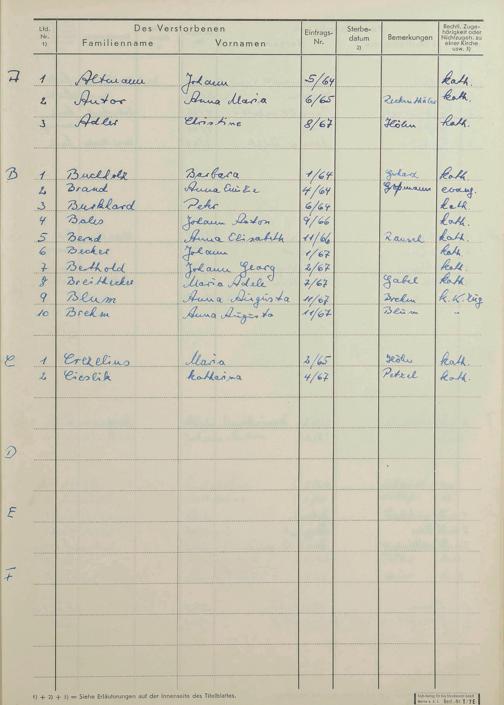 Lfd. Nr. 1) Des Verstorbenen Familienname Vornamen Eintrags-Nr. Sterbedatum 2) Bemerkungen Rechtl. Zugehörigkeit oder Nichtzugeh. zu einer Kirche usw. 3)
A 1 Altmann Johann 5/64 kath.
2 Autor Anna Maria 6/65 kath.
3 Adler Christine 8/67 Höhn kath.
B 1 Buchholz Barbara 1/64 kath.
2 Brand Anna 4/64 evang.
3 Burkhard Peter 6/64 kath.
4 Johann Anton 9/66 kath.
5 Bernd Anna Elisabeth 11/66 kath.
6 Becker Johann 1/67 kath.
7 Berthold Johann Georg 2/67 kath.
8 Maria Adele 7/67 Gabel kath.
9 Blum Anna Augusta 11/67 Brehm
10 Brehm Anna Augusta 11/67 Blum "
C 1 Maria 2/65 Höhn kath.
2 Cieslik Katharina 4/67 Petzel kath.
D
E
F
1) + 2) + 3) = Siehe Erläuterungen auf der Innenseite des Titelblattes.